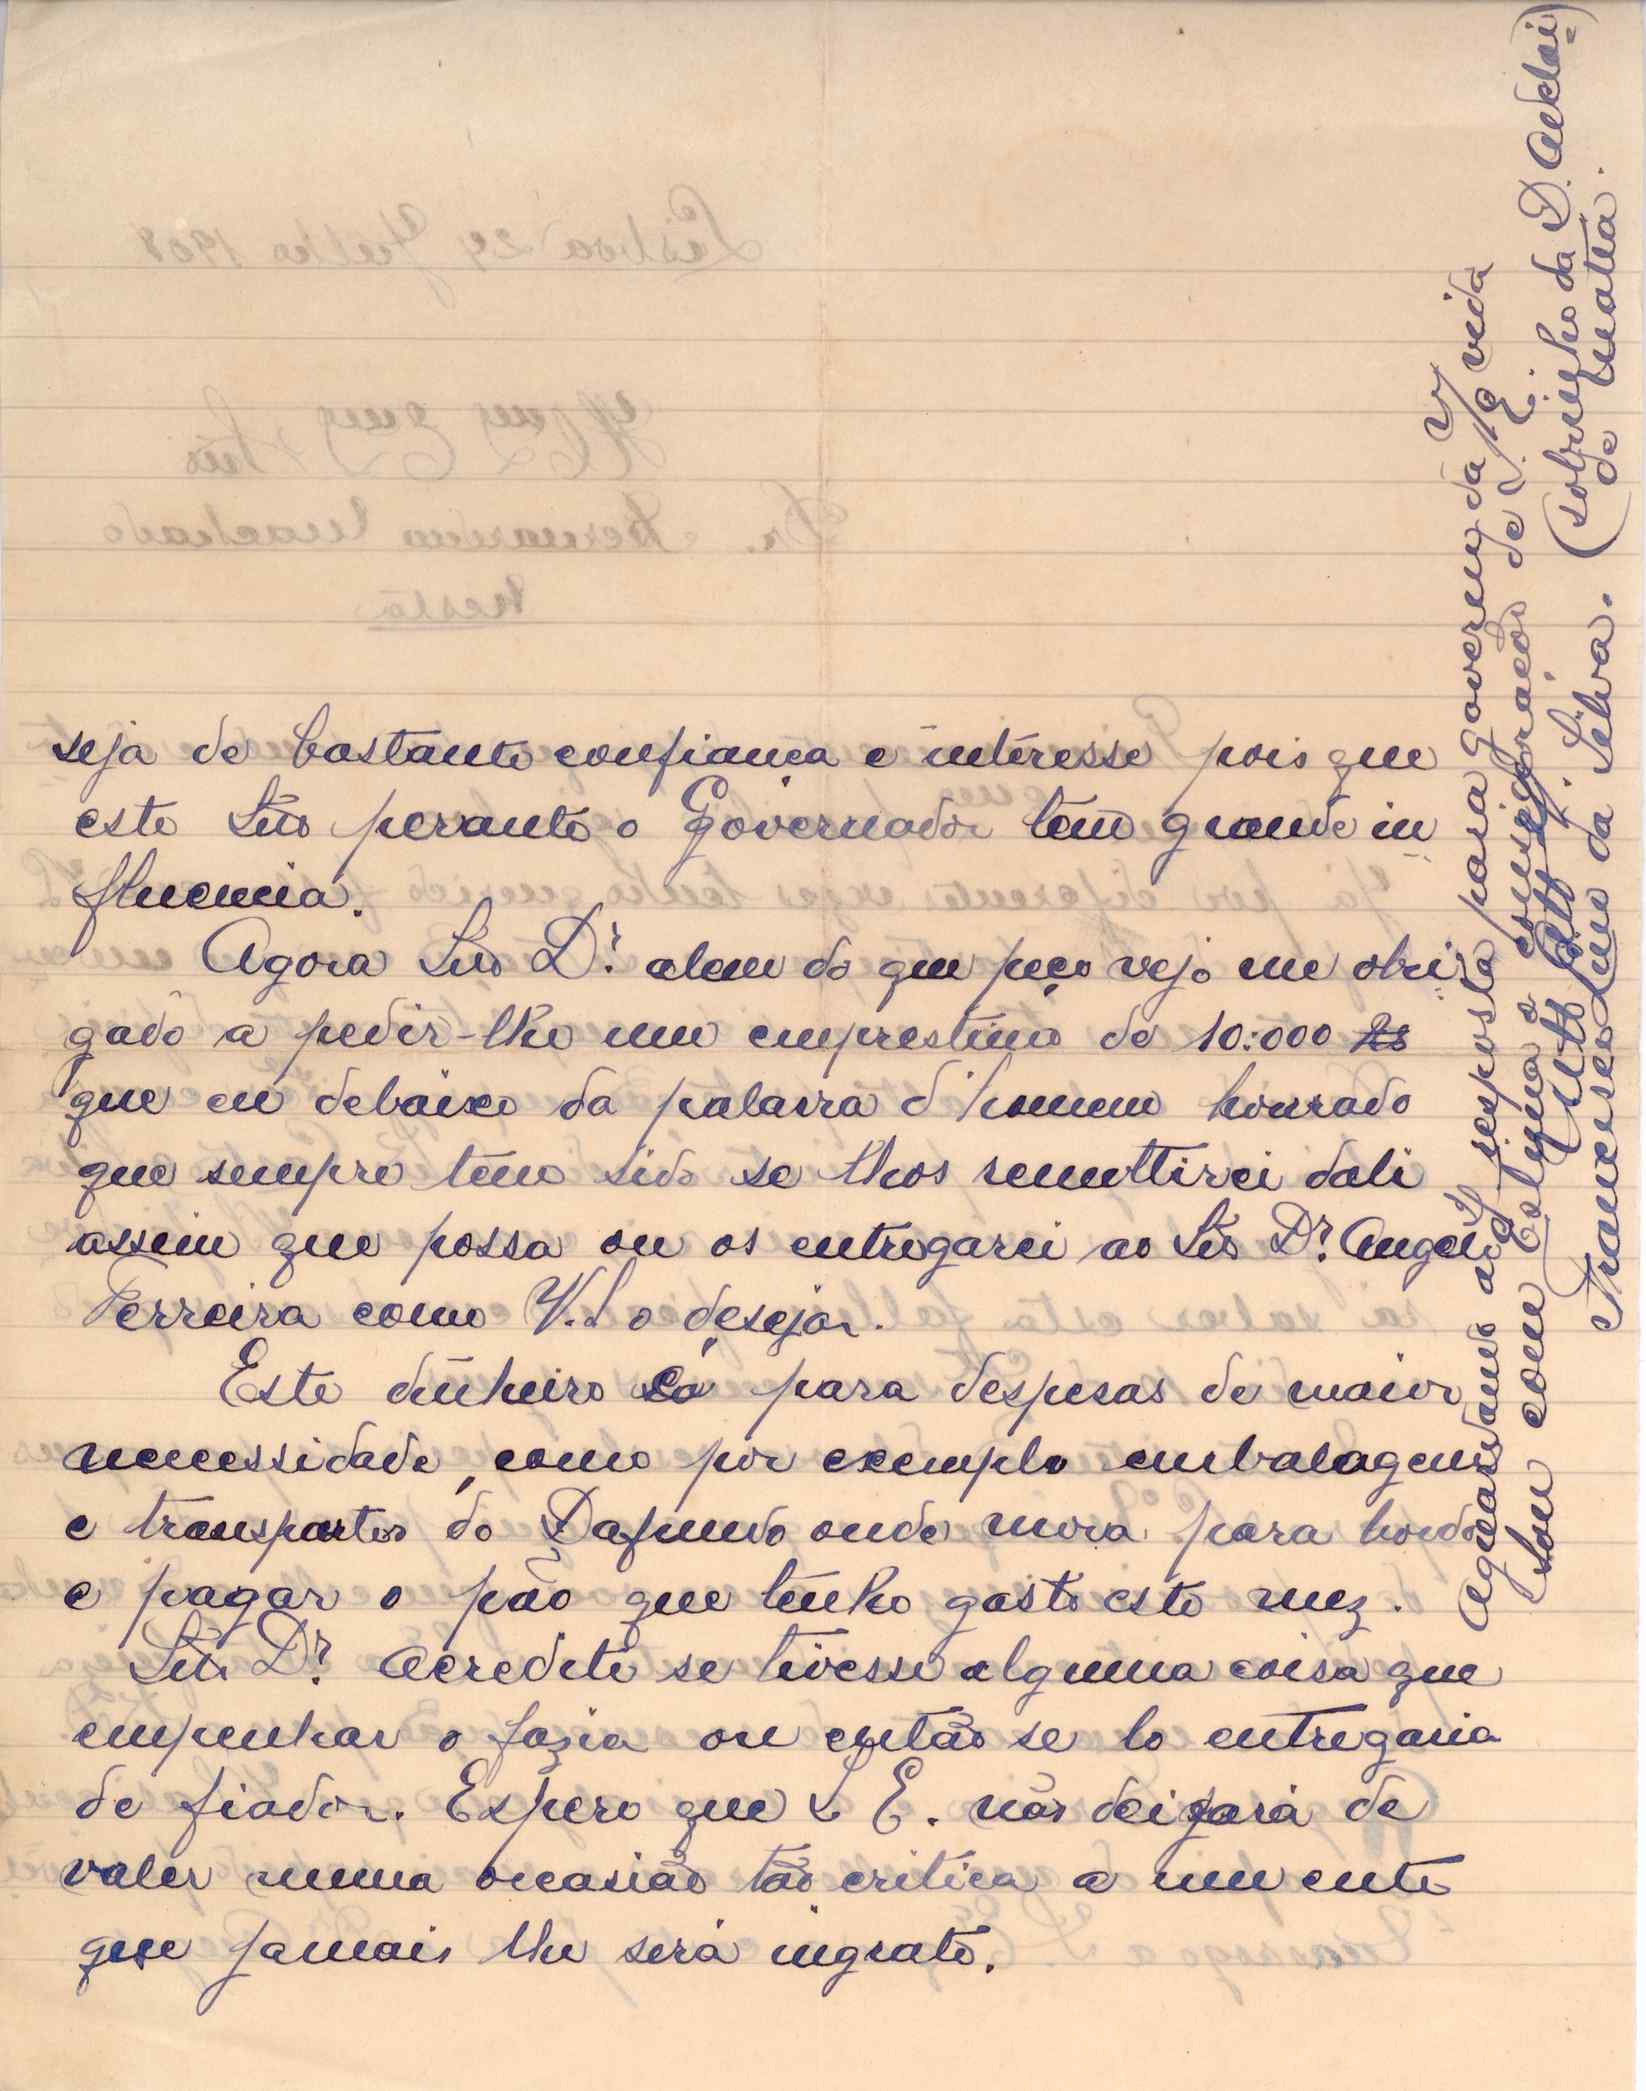 seja de bastante confiança e interesse pois que
este Snr perante o Governador tem grande in
fluencia.
Agora Snr Dr. alem do que peço vejo me obri
gado a pedir-lhe um emprestimo de 10:000 Rs
que eu debaixo da palavra d'homem honrado
que sempre tem sido se lhos remettirei dali
assim que possa ou os entregarei ao Snr Dr. Angelo
Ferreira como V. S o desejar.
Este dinheiro só para despesas de maior
necessidade, como por exemplo embalagens
e transportes do Dafundo onde mora para bordo
e pagar o pão que tenho gasto este mez.
Snr Dr. Acredite se tivesse alguma coisa que
empenhar o fazia ou então se lo entregaria
de fiador. Espero que S E. não deixará de
valer numa occasião tão critica a um ente
que jamais lhe será ingrato.
Aguardando a resposta para governo da V vida
Sou com Estima e consideração de V. E.
Mtto Att
Francisco Lino da Silva.
(sobrinho da D. Adelai=
de Matta.)
Lisboa 29 Julho 1908
Snr
Dr. Bernardino Machado
Nesta